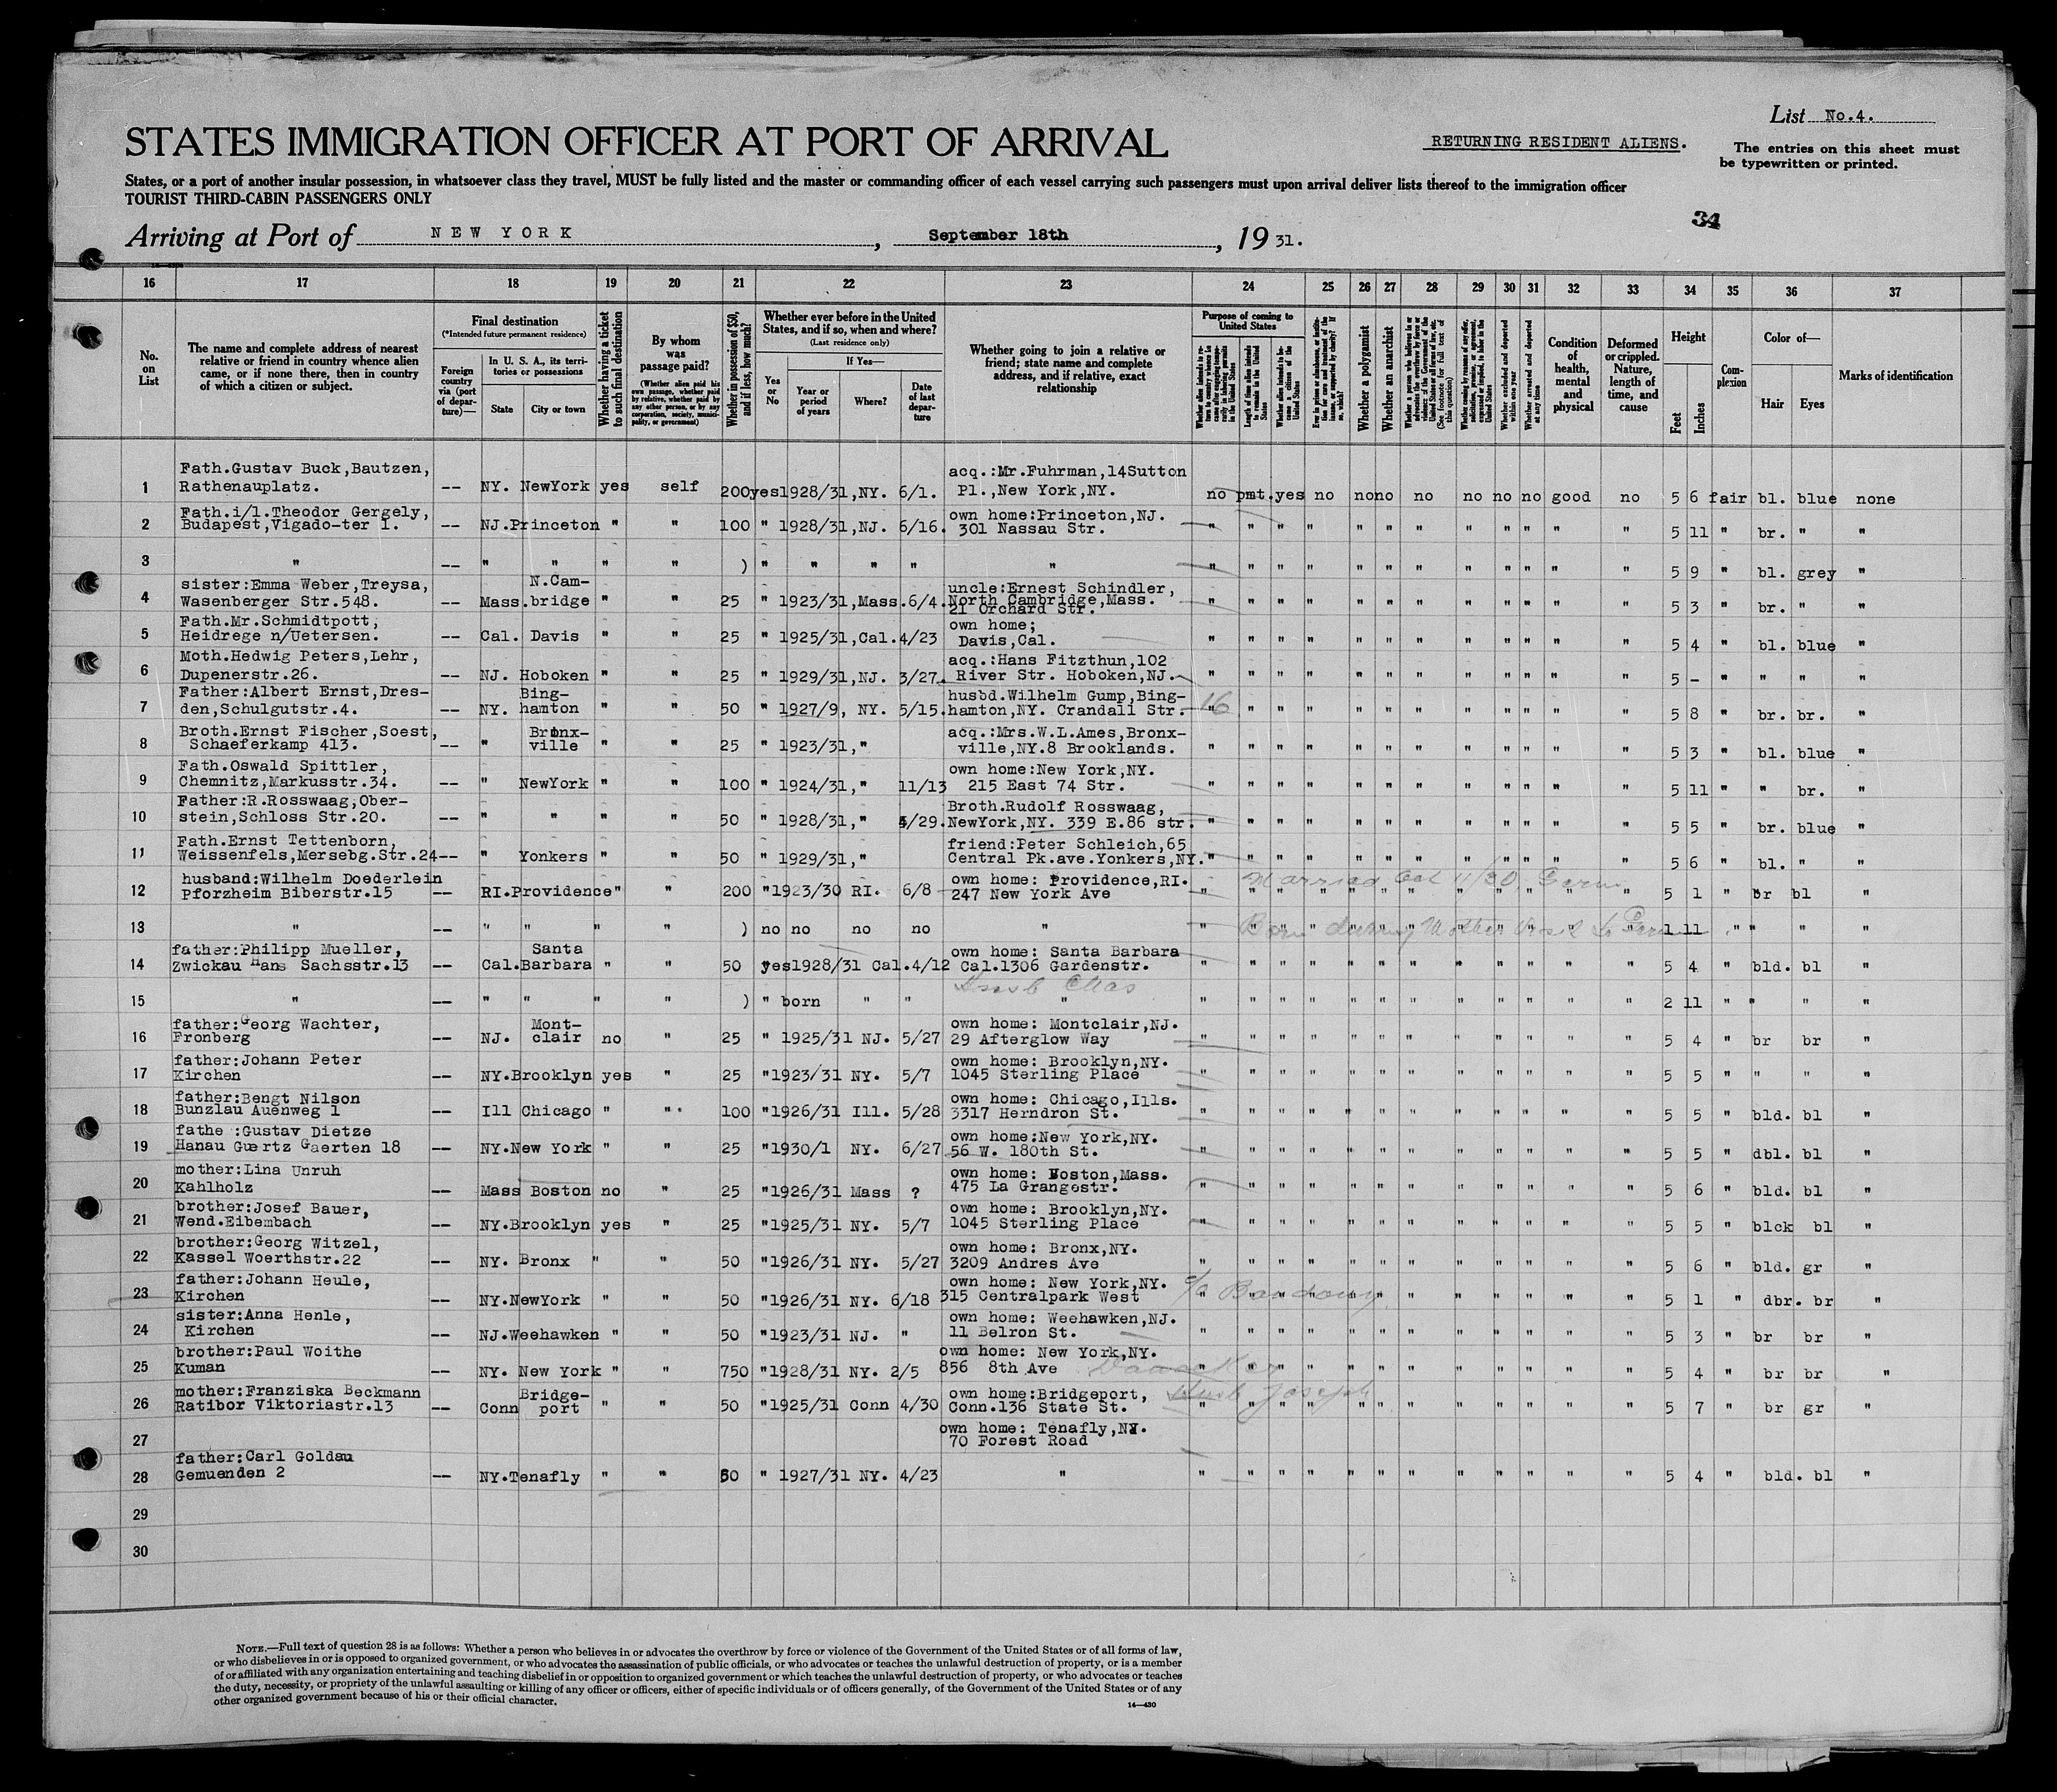 List No.4.
STATES IMMIGRATION OFFICER AT PORT OF ARRIVAL
RETURNING RESIDENT ALIENS.
The entries on this sheet must
be typewritten or printed.
States, or a port of another insular possession, in whatsoever class they travel, MUST be fully listed and the master or commanding officer of each vessel carrying such passengers must upon arrival deliver lists thereof to the immigration officer
TOURIST THIRD-CABIN PASSENGERS ONLY
34
Arriving at Port of NEW YORK, September 18th, 1931.
16 17 18 19 20 21 22 23 24 25 26 27 28 29 30 31 32 33 34 35 36 37
No. on List
The name and complete address of nearest relative or friend in country whence alien came, or if none there, then in country of which a citizen or subject.
Final destination
(*Intended future permanent residence)
Foreign country via (port of departure)—
In U. S. A., its territories or possessions
State
City or town
Whether having a ticket to such final destination
By whom was passage paid?
(Whether alien paid his own passage, whether paid by relative, whether paid by any other person, or by any corporation, society, municipality, or government)
Whether in possession of $50, and if less, how much?
Whether ever before in the United States, and if so, when and where?
(Last residence only)
Yes or No
If Yes—
Year or period of years
Where?
Date of last departure
Whether going to join a relative or friend; state name and complete address, and if relative, exact relationship
Purpose of coming to United States
Length of time alien intends to remain in the United States
Whether alien intends to become a citizen of the United States
Whether a polygamist
Whether an anarchist
Whether excluded and deported within one year
Whether arrested and deported at any time
Condition of health, mental and physical
Deformed or crippled. Nature, length of time, and cause
Height
Feet
Inches
Complexion
Color of—
Hair
Eyes
Marks of identification
1 Fath.Gustav Buck,Bautzen, Rathenauplatz. -- NY. NewYork yes self 200 yes 1928/31,NY. 6/1. acq.:Mr.Fuhrman,14Sutton Pl.,New York,NY. no pmt. yes no no no no no no no good no 5 6 fair bl. blue none
2 Fath.i/l.Theodor Gergely, Budapest,Vigado-ter I. -- NJ.Princeton " " 100 " 1928/31,NJ. 6/16. own home:Princeton,NJ. 301 Nassau Str. " " " " " " " " " " " " 5 11 " br. " "
3 " -- " " " " ) " " " " " " " " " " " " " " " " " " 5 9 " bl. grey "
4 sister:Emma Weber,Treysa, Wasenberger Str.548. -- Mass. N.Cam-bridge " " 25 " 1923/31,Mass.6/4. uncle:Ernest Schindler, North Cambridge,Mass. 21 Orchard Str. " " " " " " " " " " " " 5 3 " br. " "
5 Fath.Mr.Schmidtpott, Heidrege n/Uetersen. -- Cal. Davis " " 25 " 1925/31,Cal.4/23 own home; Davis,Cal. " " " " " " " " " " " " 5 4 " bl. blue "
6 Moth.Hedwig Peters,Lehr, Dupenerstr.26. -- NJ. Hoboken " " 25 " 1929/31,NJ. 3/27. acq.:Hans Fitzthun,102 River Str. Hoboken,NJ. " " " " " " " " " " " " 5 - " " " "
7 Father:Albert Ernst,Dres-den,Schulgutstr.4. -- NY. Bing-hamton " " 50 " 1927/9, NY. 5/15. husbd.Wilhelm Gump,Bing-hamton,NY. Crandall Str. 16 " " " " " " " " " " " " 5 8 " br. br. "
8 Broth.Ernst Fischer,Soest, Schaeferkamp 413. -- " Bronx-ville " " 25 " 1923/31," acq.:Mrs.W.L.Ames,Bronx-ville,NY.8 Brooklands. " " " " " " " " " " " " 5 3 " bl. blue "
9 Fath.Oswald Spittler, Chemnitz,Markusstr.34. -- " NewYork " " 100 " 1924/31," 11/13 own home:New York,NY. 215 East 74 Str. " " " " " " " " " " " " 5 11 " " br. "
10 Father:R.Rosswaag,Ober-stein,Schloss Str.20. -- " " " " 50 " 1928/31," 4/29. Broth.Rudolf Rosswaag, NewYork,NY. 339 E.86 str. " " " " " " " " " " " " 5 5 " br. blue "
11 Fath.Ernst Tettenborn, Weissenfels,Mersebg.Str.24 -- " Yonkers " " 50 " 1929/31," friend:Peter Schleich,65 Central Pk.ave.Yonkers,NY. " " " " " " " " " " " " 5 6 " bl. " "
12 husband:Wilhelm Doederlein Pforzheim Biberstr.15 -- RI.Providence " " 200 " 1923/30 RI. 6/8 own home: Providence,RI. 247 New York Ave Married Oct 11/30, Germ. " " " " " " " " " " " " 5 1 " br bl "
13 " -- " " " " ) no no no no " Born during Mother Visit to Germ " " " " " " " " " " " " 1 11 " " " "
14 father:Philipp Mueller, Zwickau Hans Sachsstr.13 -- Cal. Santa Barbara " " 50 yes 1928/31 Cal.4/12 own home: Santa Barbara Cal.1306 Gardenstr. " " " " " " " " " " " " 5 4 " bld. bl "
Husb Chas
15 " -- " " " " ) " born " " " " " " " " " " " " " " " " 2 11 " " " "
16 father:Georg Wachter, Fronberg -- NJ. Mont-clair no " 25 " 1925/31 NJ. 5/27 own home: Montclair,NJ. 29 Afterglow Way " " " " " " " " " " " " 5 4 " br br "
17 father:Johann Peter Kirchen -- NY.Brooklyn yes " 25 " 1923/31 NY. 5/7 own home: Brooklyn,NY. 1045 Sterling Place " " " " " " " " " " " " 5 5 " " " "
18 father:Bengt Nilson Bunzlau Auenweg 1 -- Ill Chicago " " 100 " 1926/31 Ill. 5/28 own home: Chicago,Ills. 3317 Herndron St. " " " " " " " " " " " " 5 5 " bld. bl "
19 fathe :Gustav Dietze Hanau Guertz Gaerten 18 -- NY.New York " " 25 " 1930/1 NY. 6/27 own home:New York,NY. 56 W. 180th St. " " " " " " " " " " " " 5 5 " dbl. bl "
20 mother:Lina Unruh Kahlholz -- Mass Boston no " 25 " 1926/31 Mass ? own home: Boston,Mass. 475 La Grangestr. " " " " " " " " " " " " 5 6 " bld. bl "
21 brother:Josef Bauer, Wend.Eibembach -- NY.Brooklyn yes " 25 " 1925/31 NY. 5/7 own home: Brooklyn,NY. 1045 Sterling Place " " " " " " " " " " " " 5 5 " blck bl "
22 brother:Georg Witzel, Kassel Woerthstr.22 -- NY. Bronx " " 50 " 1926/31 NY. 5/27 own home: Bronx,NY. 3209 Andres Ave " " " " " " " " " " " " 5 6 " bld. gr "
23 father:Johann Heule, Kirchen -- NY.NewYork " " 50 " 1926/31 NY. 6/18 own home: New York,NY. 315 Centralpark West c/o " " " " " " " " " " " " 5 1 " dbr. br "
24 sister:Anna Henle, Kirchen -- NJ.Weehawken " " 50 " 1923/31 NJ. " own home: Weehawken,NJ. 11 Belron St. " " " " " " " " " " " " 5 3 " br br "
25 brother:Paul Woithe Kuman -- NY. New York " " 750 " 1928/31 NY. 2/5 own home: New York,NY. 856 8th Ave " " " " " " " " " " " " 5 4 " br br "
26 mother:Franziska Beckmann Ratibor Viktoriastr.13 -- Conn Bridge-port " " 50 " 1925/31 Conn 4/30 own home:Bridgeport, Conn.136 State St. Husb Joseph " " " " " " " " " " " " 5 7 " br gr "
27 own home: Tenafly,NY. 70 Forest Road
28 father:Carl Goldau Gemuenden 2 -- NY.Tenafly " " 50 " 1927/31 NY. 4/23 " " " " " " " " " " " " " 5 4 " bld. bl "
29
30
NOTE.—Full text of question 28 is as follows: Whether a person who believes in or advocates the overthrow by force or violence of the Government of the United States or of all forms of law,
or who disbelieves in or is opposed to organized government, or who advocates the assassination of public officials, or who advocates or teaches the unlawful destruction of property, or is a member
of or affiliated with any organization entertaining and teaching disbelief in or opposition to organized government or which teaches the unlawful destruction of property, or who advocates or teaches
the duty, necessity, or propriety of the unlawful assaulting or killing of any officer or officers, either of specific individuals or of officers generally, of the Government of the United States or of any
other organized government because of his or their official character.
14—430